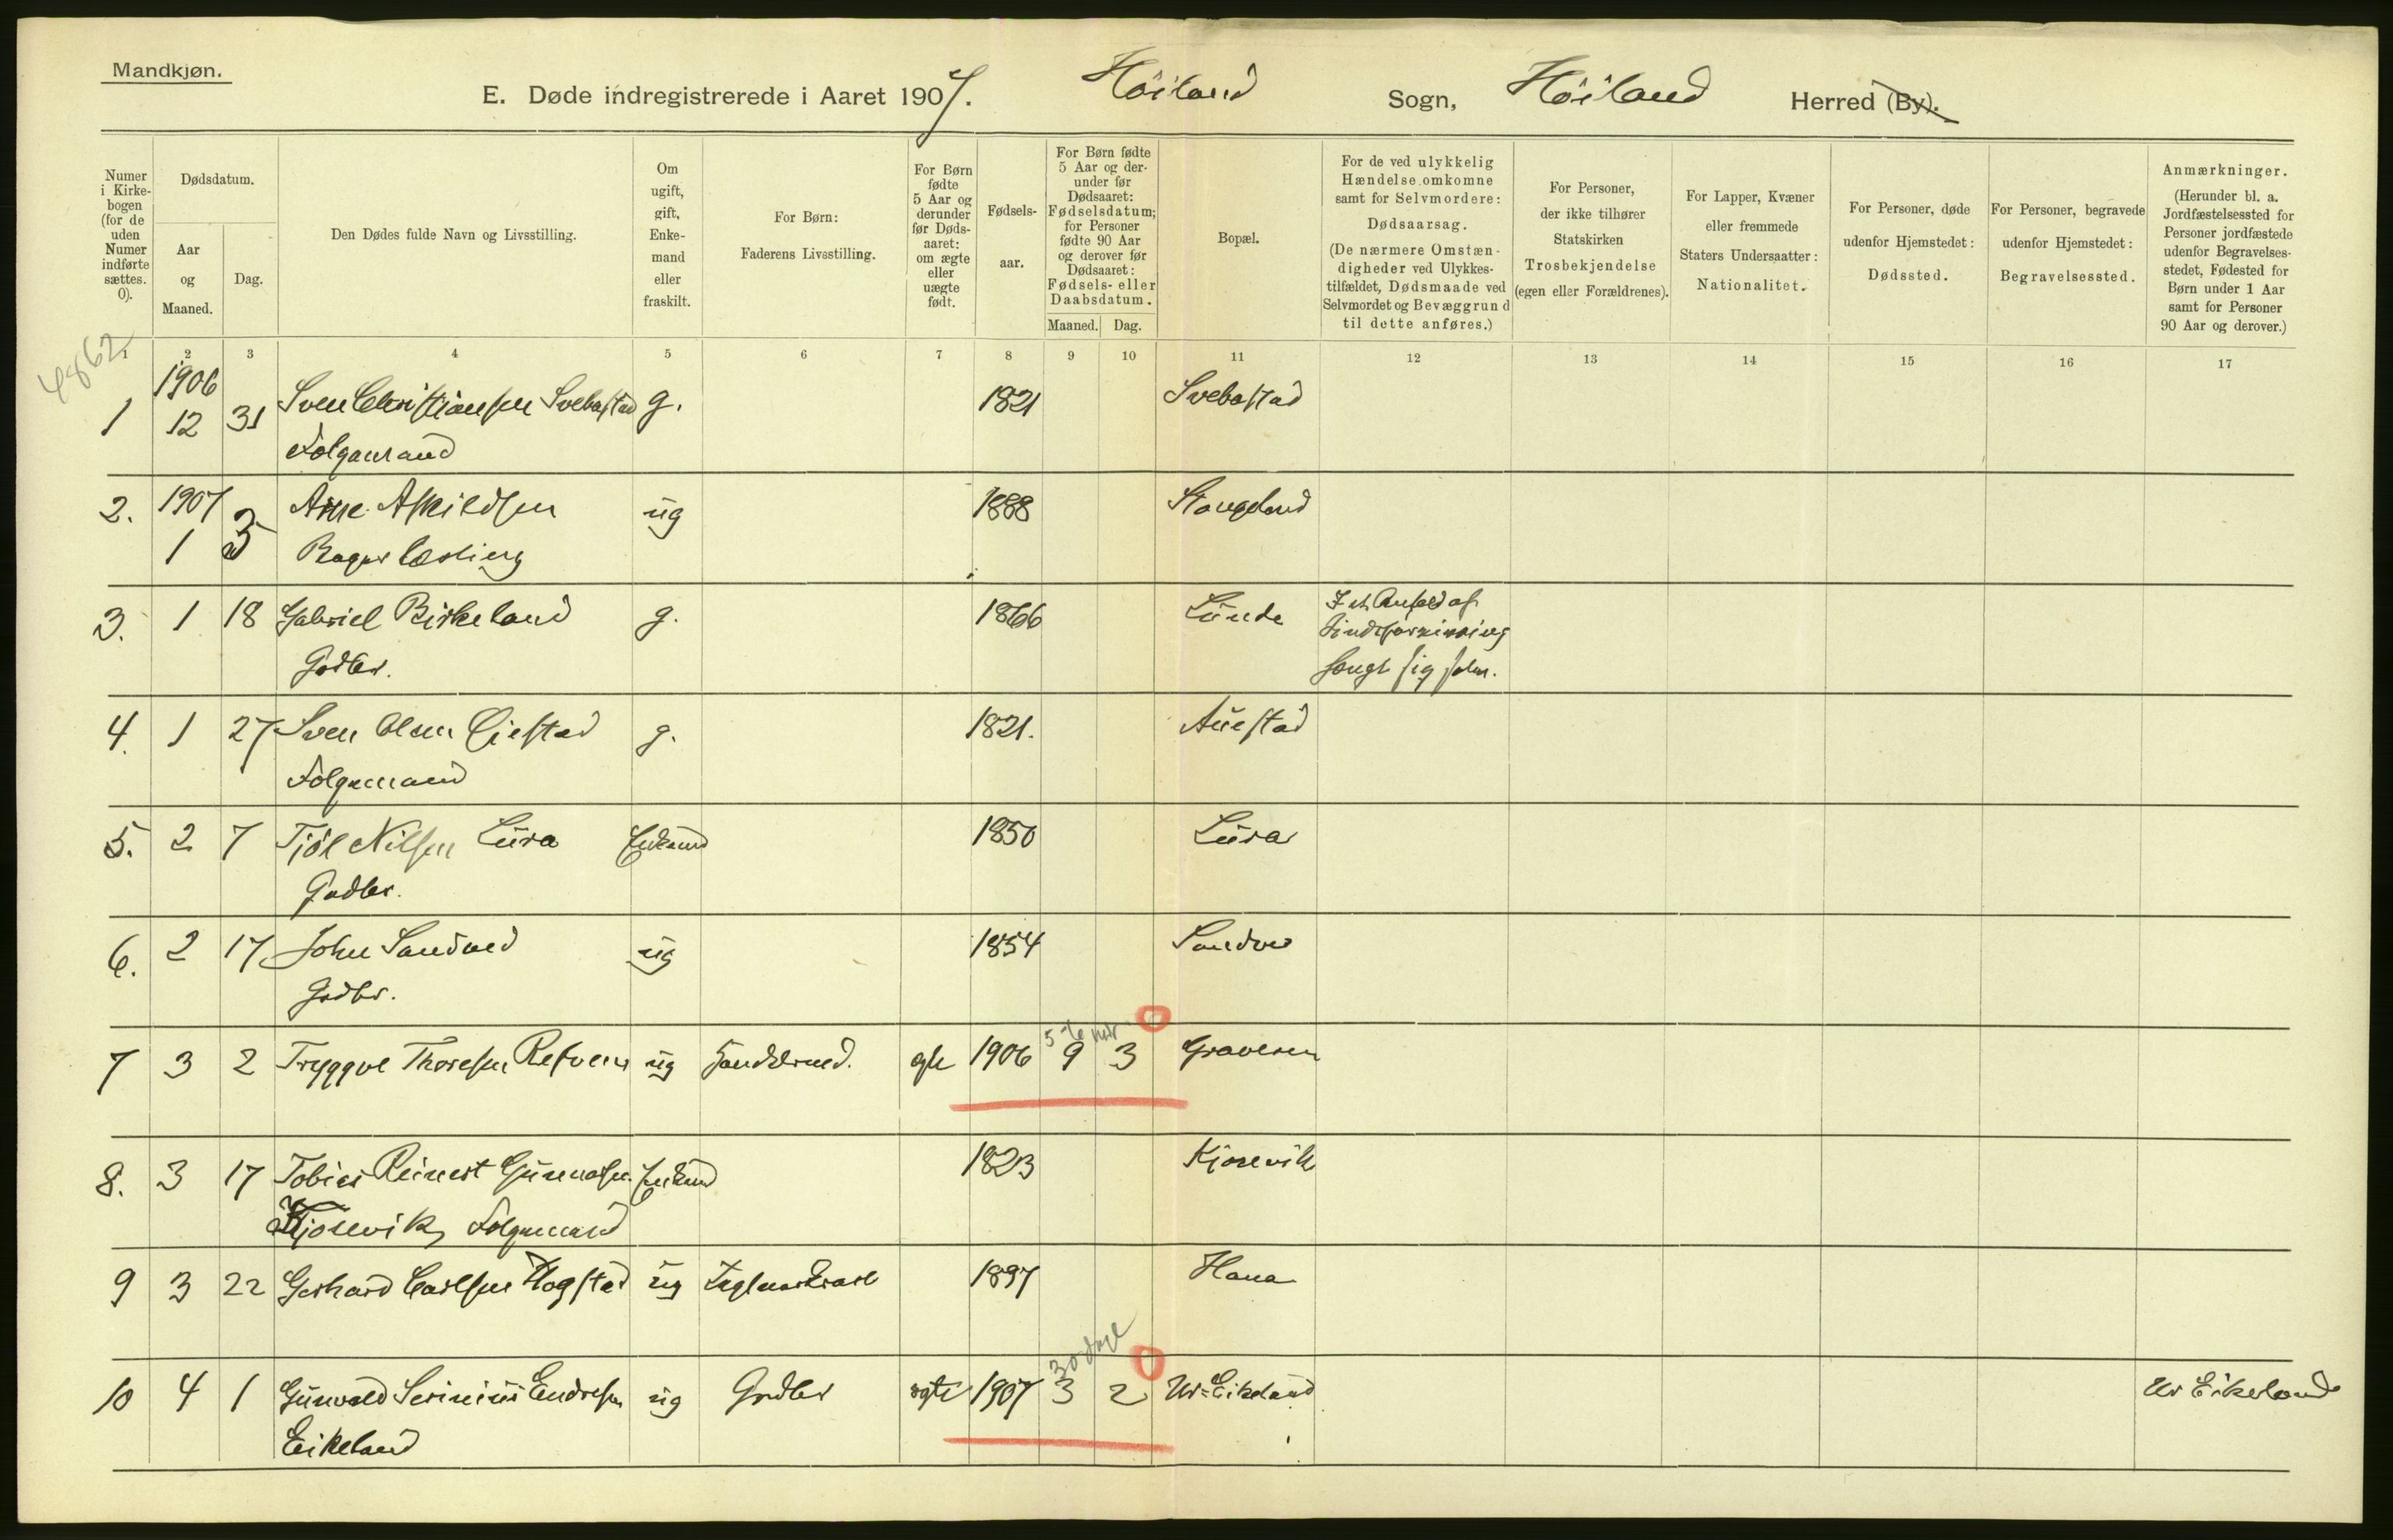 Mandkjøn.
E. Døde indregistrerede i Aaret 1907. Höiland Sogn, Höiland Herred (By).
Numer i Kirkebogen (for de uden Numer indførte sættes. 0).
Dødsdatum.
Aar og Maaned.
Dag.
Den Dødes fulde Navn og Livsstilling.
Om ugift, gift, Enkemand eller fraskilt.
For Børn:
Faderens Livsstilling.
For Børn fødte 5 Aar og derunder før Dødsaaret: om ægte eller uægte født.
Fødselsaar.
For Børn fødte 5 Aar og derunder før Dødsaaret: Fødselsdatum; for Personer fødte 90 Aar og derover før Dødsaaret: Fødsels- eller Daabsdatum.
Maaned. Dag.
Bopæl.
For de ved ulykkelig Hændelse omkomne samt for Selvmordere:
Dødsaarsag.
(De nærmere Omstændigheder ved Ulykkestilfældet, Dødsmaade ved Selvmordet og Bevæggrund til dette anføres.)
For Personer, der ikke tilhører Statskirken
Trosbekjendelse
(egen eller Forældrenes).
For Lapper, Kvæner eller fremmede Staters Undersaatter:
Nationalitet.
For Personer, døde udenfor Hjemstedet:
Dødssted.
For Personer, begravede udenfor Hjemstedet:
Begravelsessted.
Anmærkninger.
(Herunder bl. a. Jordfæstelsessted for Personer jordfæstede udenfor Begravelsesstedet, Fødested for Børn under 1 Aar samt for Personer 90 Aar og derover.)
4862
1 2 3 4 5 6 7 8 9 10 11 12 13 14 15 16 17
1906
1 12 31 Sven Christiansen Svebastad g. 1821 Svebastad
Folgemand
2. 1907 Arne Askildsen ug 1888 Stangeland
1 3
3. 1 18 Gabriel Birkeland g. 1866 Lunde I et Anfald af
Sindsforvirring
Grdbr. hængt sig selv.
4. 1 27 Sven Olsen Øiestad g. 1821. Auestad
Folgemand
5. 2 7 Tjöl Nilsen Lura Enkemd 1850 Lura
Grdbr.
6. 2 17 John Sandved ug 1854 Sandve
Grdbr.
5-6 mdr
7 3 2 Tryggve Thoresen Refvem ug Handelsmd. gte 1906 9 3 Graveren
8. 3 17 Tobias Reinert Gunnarsen Enkemd 1823 Kjosevik
Kjosevik, Folgemand
9 3 22 Gerhard Carlsen Hogstad ug Teglværksarb 1897 Hana
30 dage
10 4 1 Gunvald Serinius Endresen ug Grdbr ægte 1907 3 2 Ur-Eikeland Ur Eikeland
Eikeland